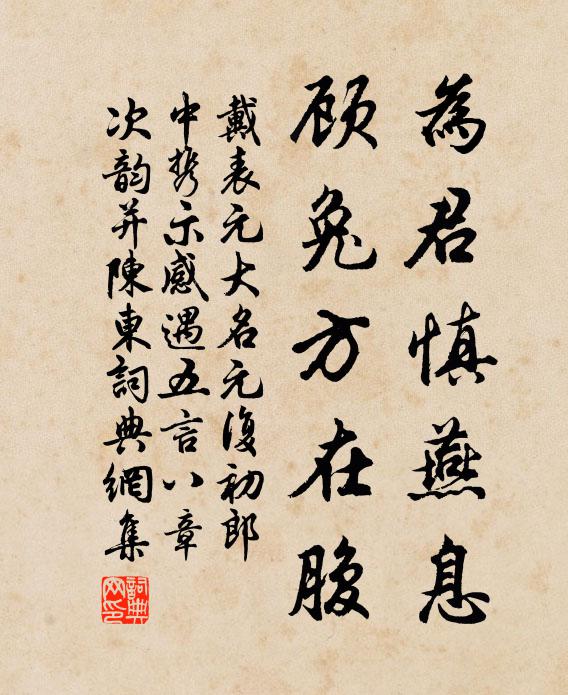 為君慎燕息
顾兔方在腹
戴表元大名元復初郎
中携示感遇五言八章
次韵并陳東詞典網集
詞典
网印